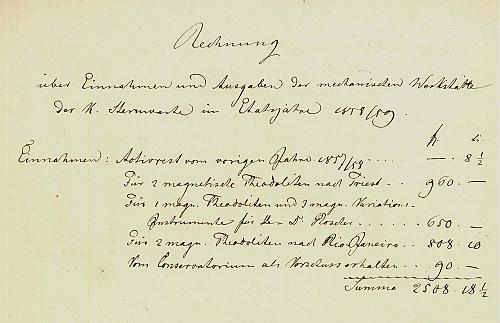 Rechnung
über Einnahmen und Ausgaben der mechanischen Werkstätte
der K. Sternwarte im Etatsjahre 1858/59.
fl. x.
Einnahmen: Activrest vom vorigen Jahre 1857/58 ..... — . 8 1/2
Für 2 magnetische Theodoliten nach Triest .. 960. —
Für 1 magn. Theodoliten und 3 magn. Variations-
Instrumente für Hr Dr. ..... 650. —
Für 2 magn. Theodoliten nach Rio-Janeiro .. 808. 10
Vom Conservatorium als Vorschuss erhalten .. 90. —
Summa 2508. 18 1/2